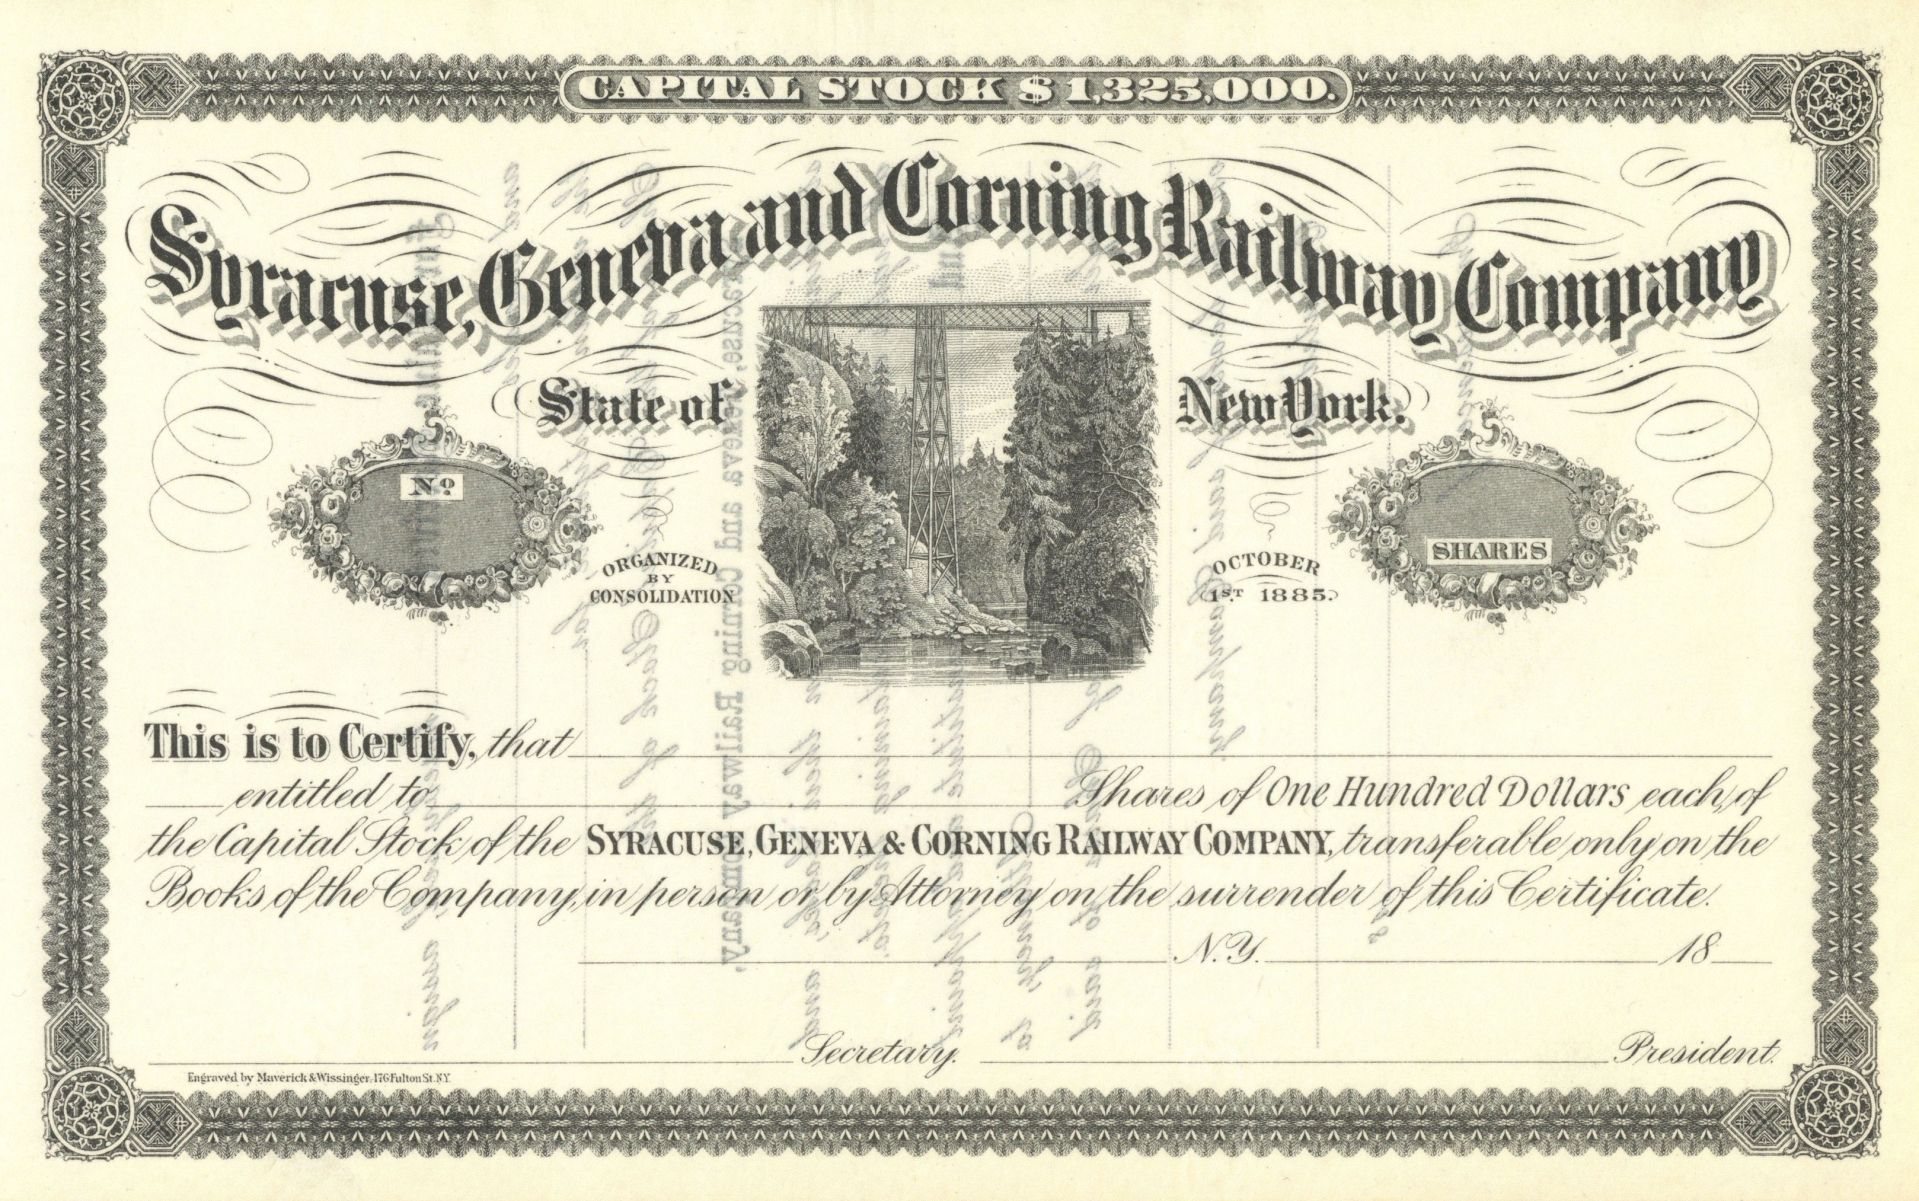 CAPITAL STOCK $1,325,000.
Syracuse, Geneva and Corning Railway Company
State of New York.
No
SHARES
ORGANIZED
BY
CONSOLIDATION
OCTOBER
1ST 1885.
This is to Certify, that
entitled to Shares of One Hundred Dollars each, of
the Capital Stock of the SYRACUSE, GENEVA & CORNING RAILWAY COMPANY, transferable only on the
Books of the Company, in person or by Attorney on the surrender of this Certificate.
N.Y. 18
Secretary. President.
Engraved by Maverick & Wissinger. 176 Fulton St. N.Y.